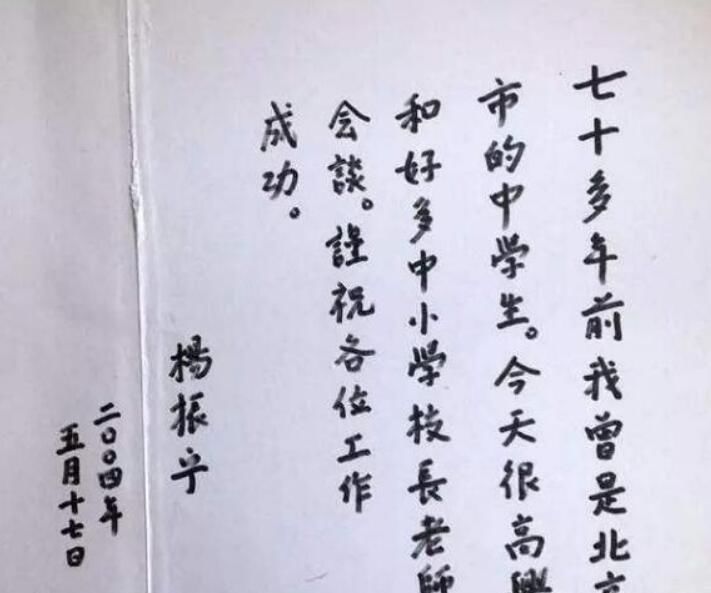 七十多年前我曾是北
市的中學生。今天很高興
和好多中小學校長老師
会談。謹祝各位工作
成功。
楊振宁
二〇〇四年
五月十七日